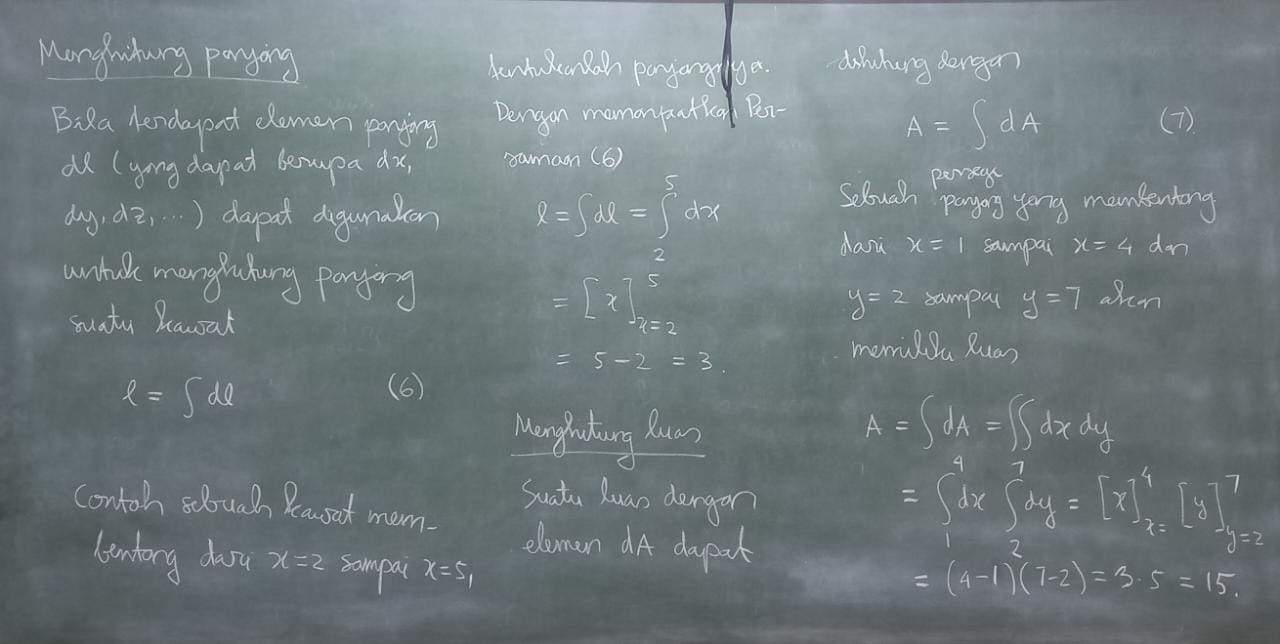 Menghitung panjang
Bila terdapat elemen panjang
dl (yang dapat berupa dx,
dy, dz, ...) dapat digunakan
untuk menghitung panjang
suatu kawat
l = ∫ dl (6)
Contoh sebuah kawat mem-
bentang dari x=2 sampai x=5,
tentukanlah panjangnya.
Dengan memanfaatkan Per-
samaan (6)
l = ∫ dl = ∫₂⁵ dx
= [x]⁵ₓ₌₂
= 5 - 2 = 3.
Menghitung luas
Suatu luas dengan
elemen dA dapat
dihitung dengan
A = ∫ dA (7).
Sebuah persegi panjang yang membentang
dari x = 1 sampai x = 4 dan
y = 2 sampai y = 7 akan
memiliki luas
A = ∫ dA = ∫∫ dx dy
= ∫₁⁴ dx ∫₂⁷ dy = [x]⁴ₓ₌ [y]⁷y=2
= (4-1)(7-2) = 3·5 = 15.